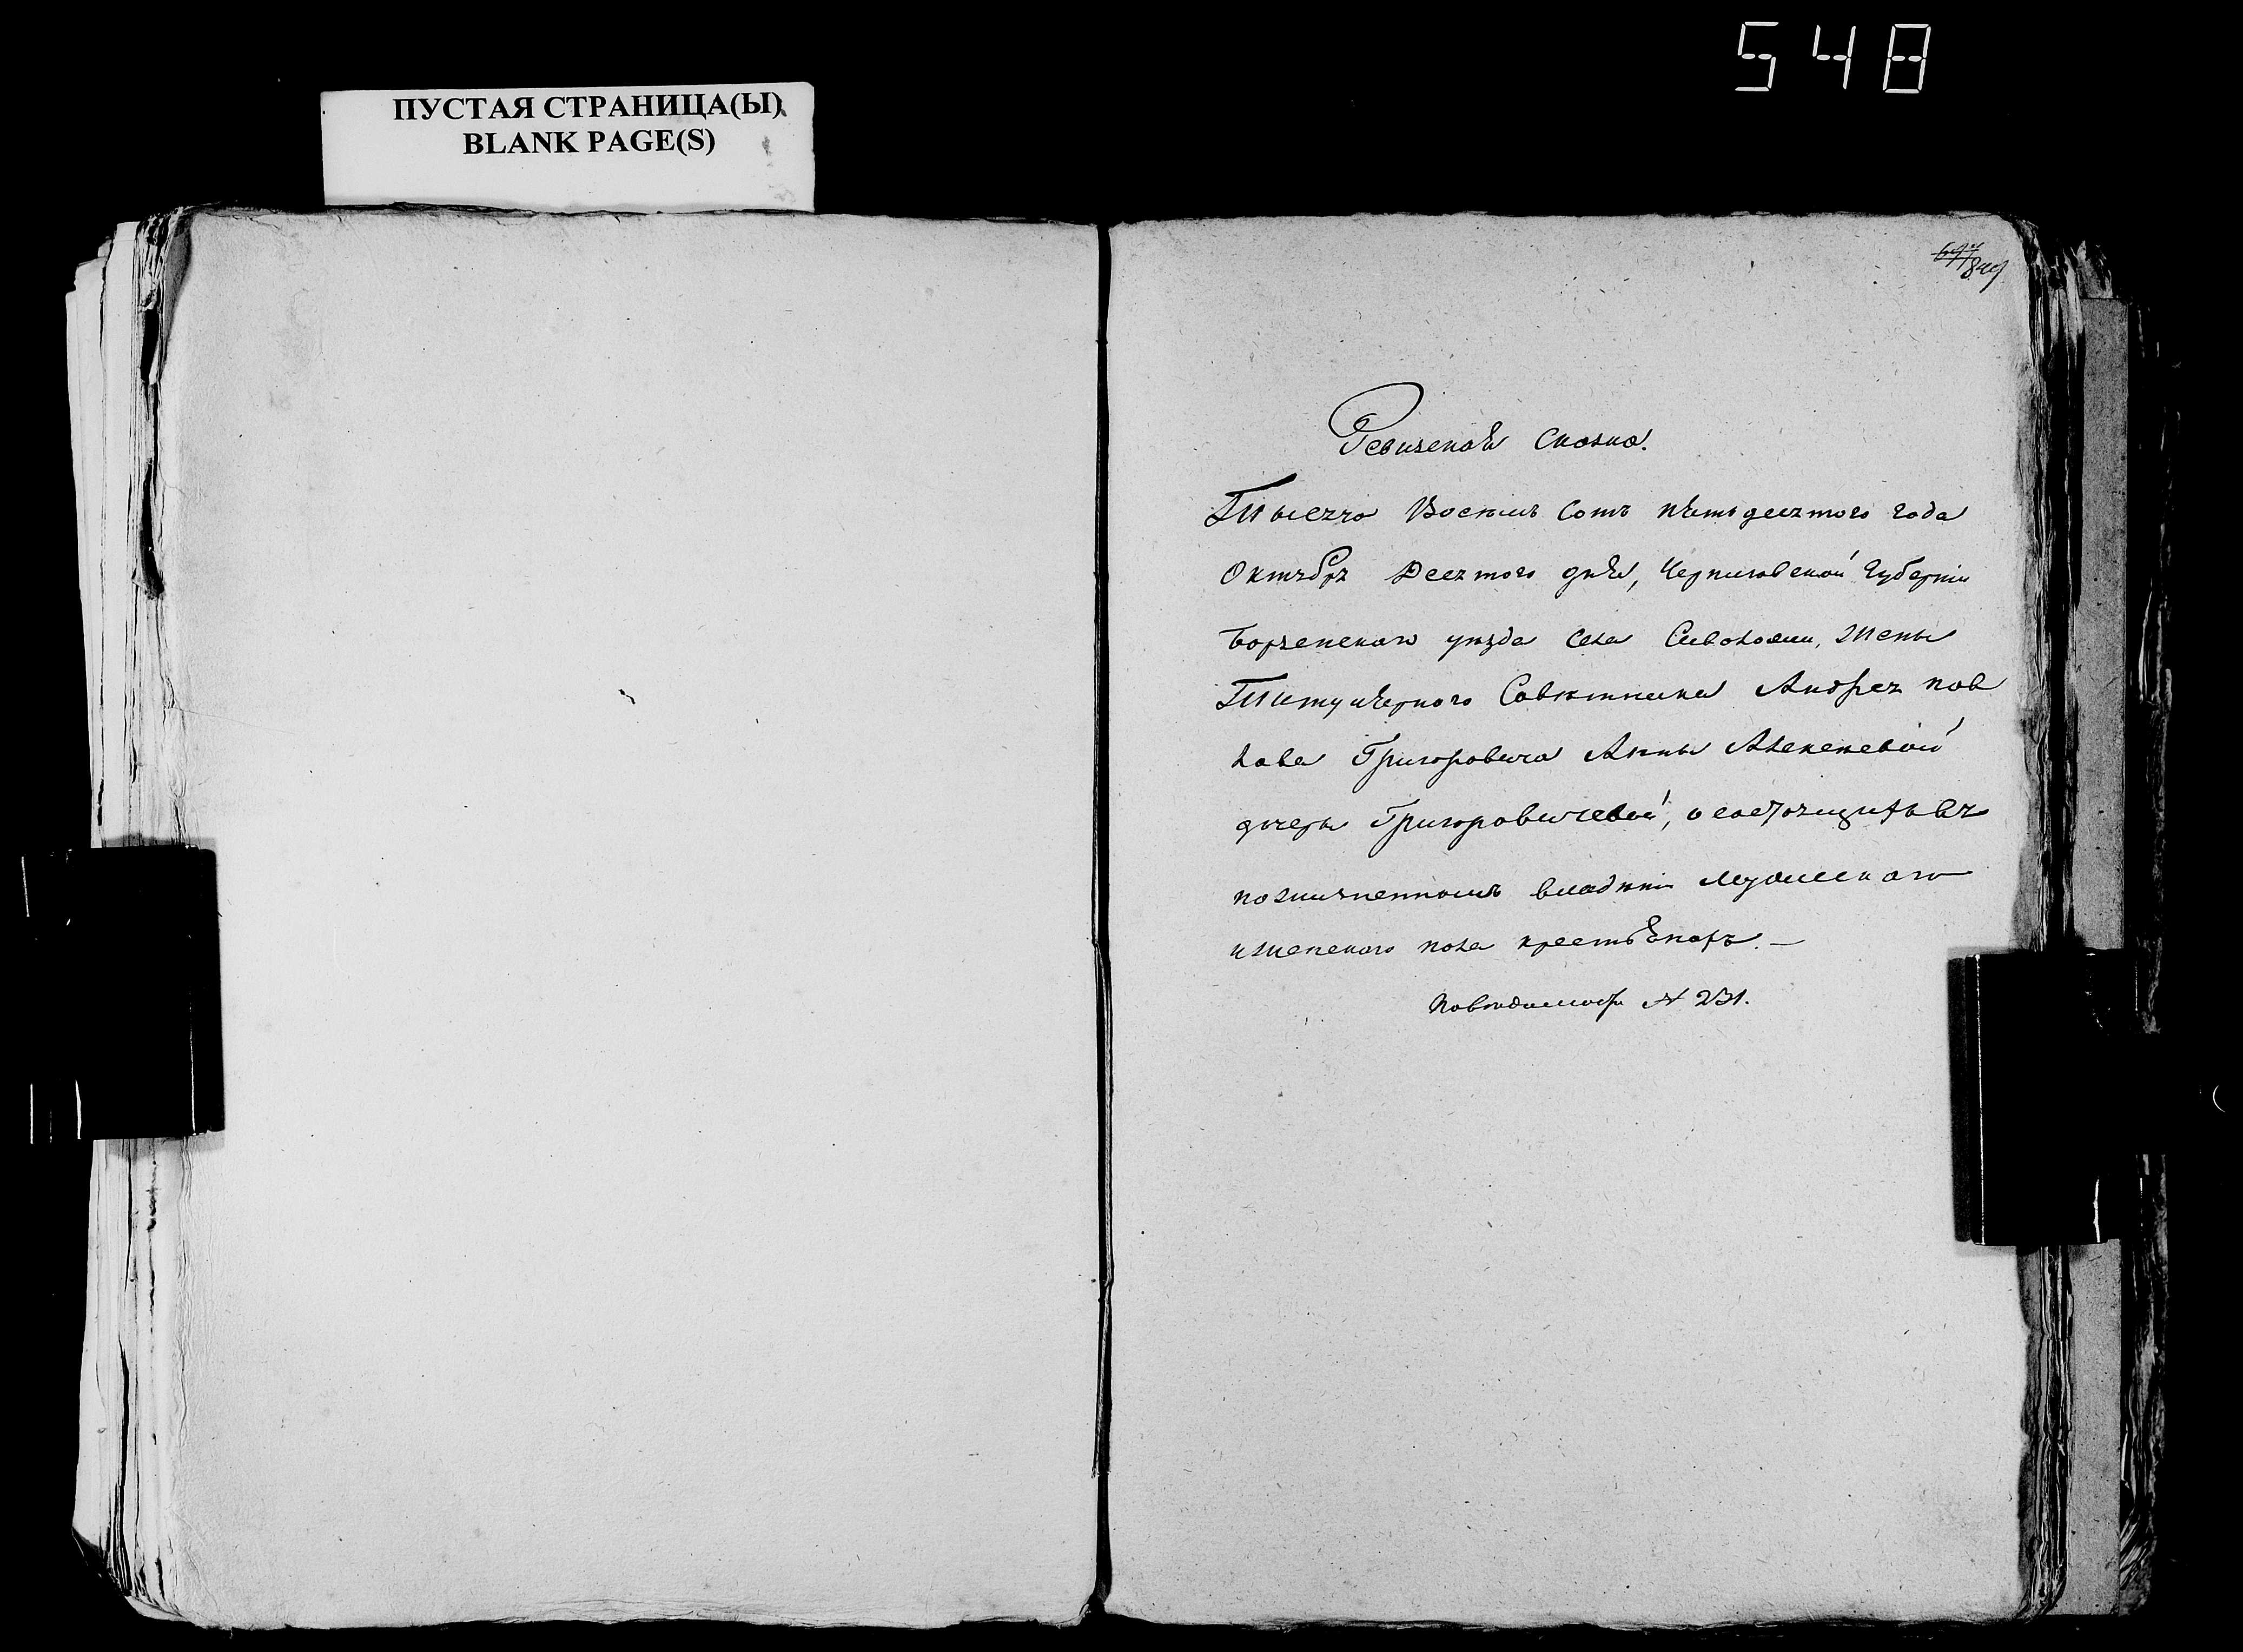 548
ПУСТАЯ СТРАНИЦА(Ы)
BLANK PAGE(S)
849
Ревизская Сказка.
Тысяча Восемь Сотъ пятьдесятого года
Октября Десятого дня, Черниговской Губернии
Борзенского уезда Села Сиволожи, жены
Титулярного Советника Андрея Пав
лова Григоровича Анны Алексеевой
дочери Григоровичевой, о состоящихъ въ
пожизненномъ владении мужеского
и женского пола крестьянахъ.—
По ведомости № 231.